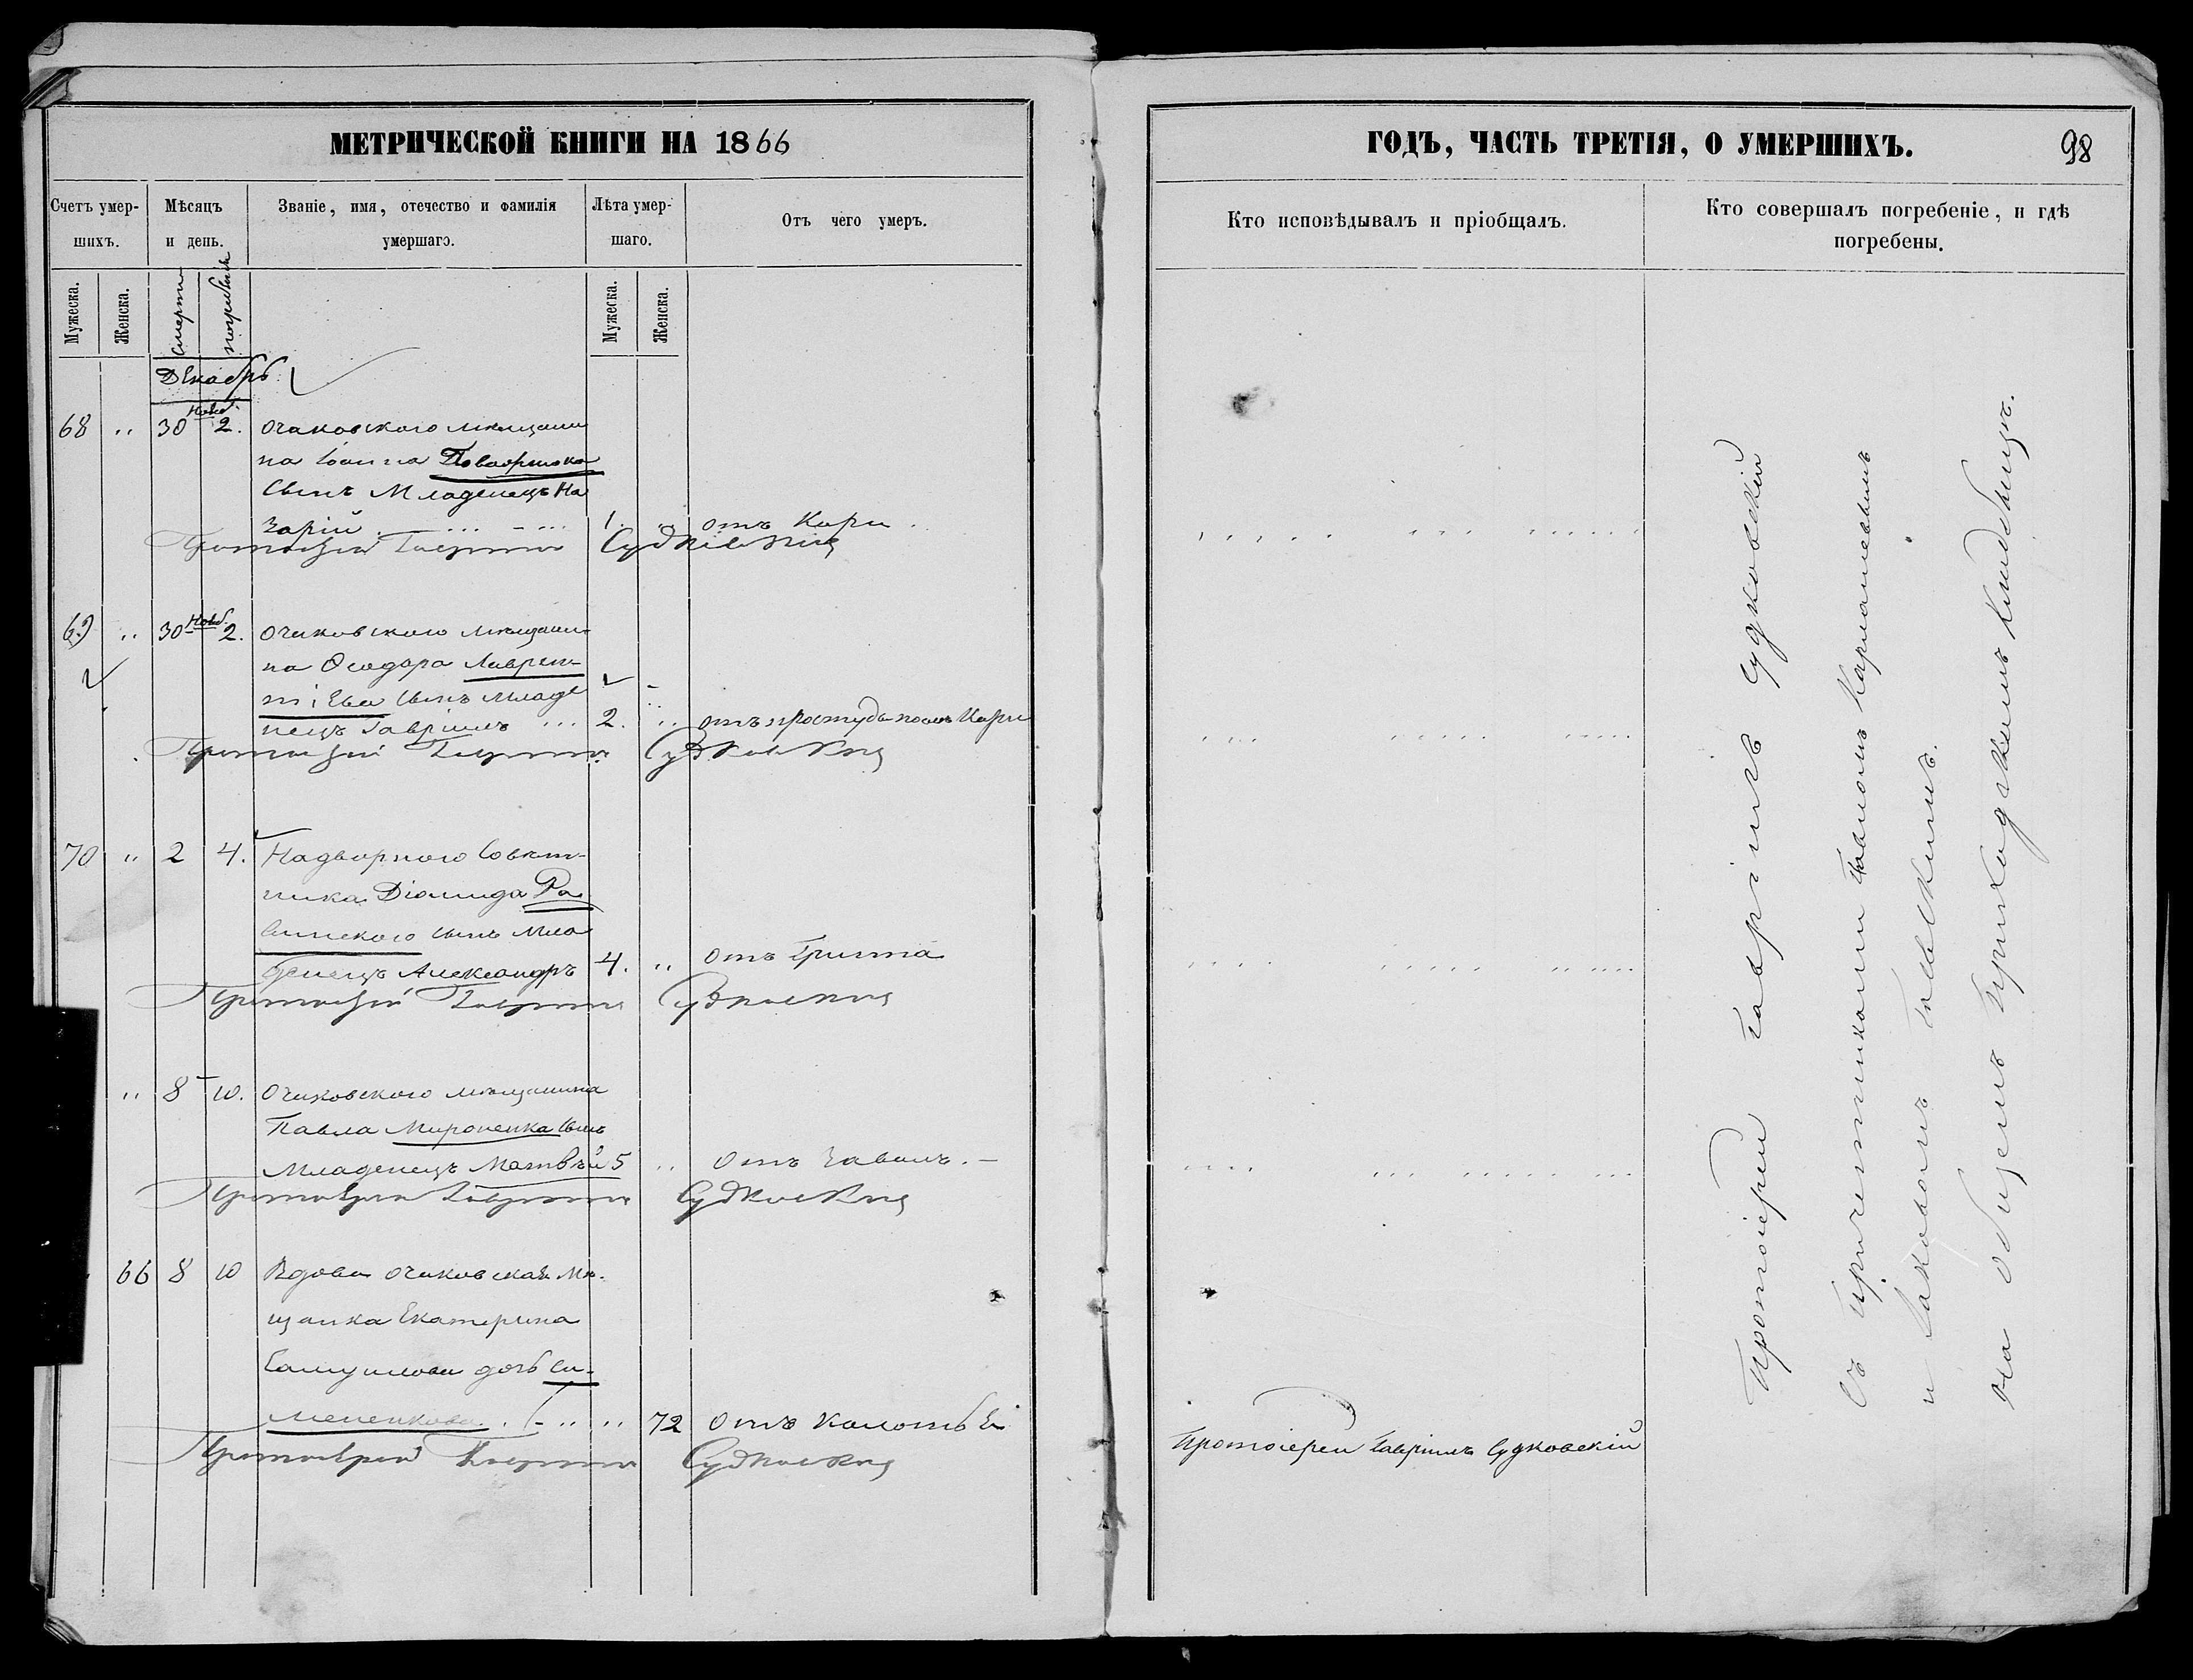 МЕТРИЧЕСКОЙ КНИГИ НА 1866
Счетъ умершихъ.
Мѣсяцъ и день.
Званіе, имя, отечество и фамилія умершаго.
Лѣта умершаго.
Отъ чего умеръ.
Мужеска.
Женска.
смерти
погребенія
Мужеска.
Женска.
Декабрь
68 " 30 Нояб. 2. Очаковского мѣщани
на Іоанна Поварчюка
сынъ Младенецъ На
зарій 1. " отъ Кори
Протоіерей Гавріилъ Судковскій
69 " 30 Нояб. 2. Очаковского мѣщани-
на Ѳеодора Лаврен-
тіева сынъ младе
нецъ Гавріилъ 2. " отъ простуды послѣ Кори
Протоіерей Гавріилъ Судковскій
70 " 2 4. Надворного Совѣт-
ника Діомида Ра
сынъ Мла
денецъ Александръ 4. " Отъ Грипа
Протоіерей Гавріилъ Судковскій
" 8 10. Очаковского мѣщанина
Павла Мироненка сынъ
Младенецъ Матвѣй 5 " Отъ Завалъ.
Протоіерей Гавріилъ Судковскій
66 8 10 Вдова очаковская мѣ-
щанка Екатерина
Самуилова дочь Си-
мененкова " " 72 Отъ Колотья
Протоіерей Гавріилъ Судковскій
ГОДЪ, ЧАСТЬ ТРЕТІЯ, О УМЕРШИХЪ.
98
Кто исповѣдывалъ и пріобщалъ.
Кто совершалъ погребеніе, и гдѣ погребены.
Протоіерей Гавріилъ Судковскій
Протоіерей Гавріилъ Судковскій
Съ причетниками
и Дьякономъ
на общемъ приходскомъ кладбищѣ.